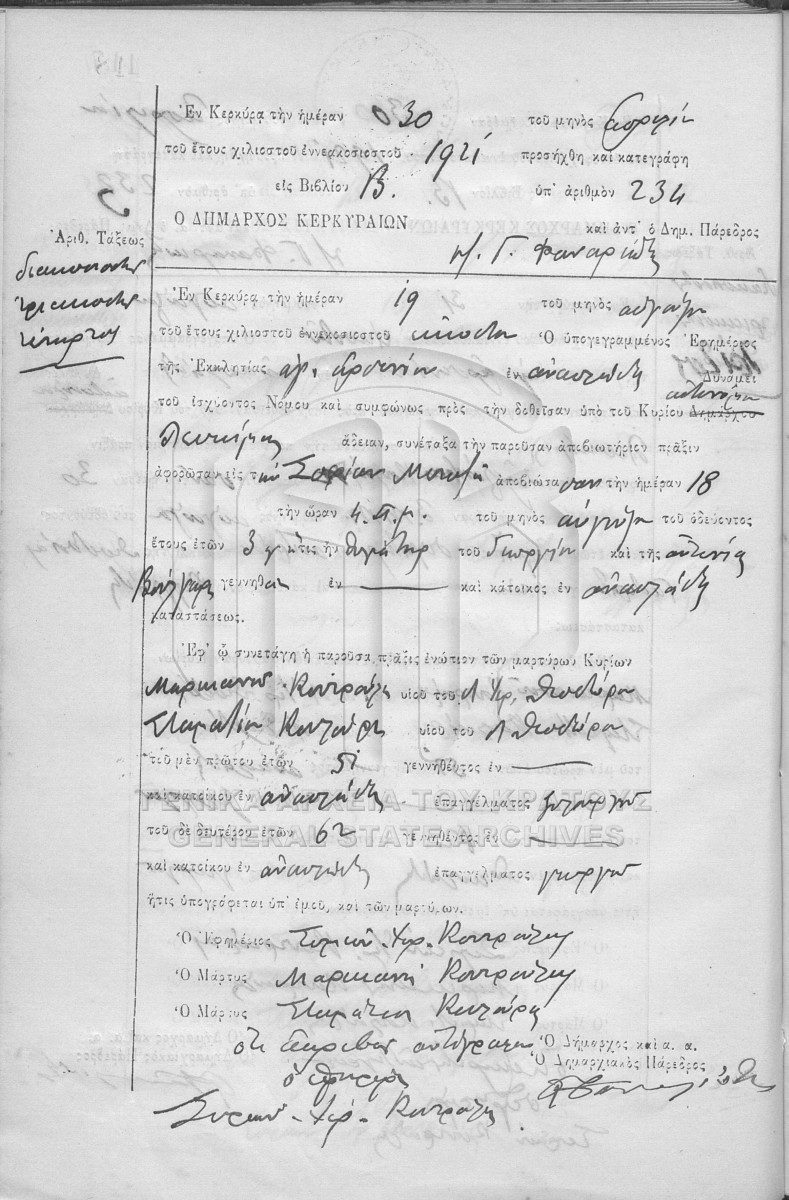 Ἐν Κερκύρᾳ τὴν ἡμέραν 30 τοῦ μηνὸς
τοῦ ἔτους χιλιοστοῦ ἐννεακοσιοστοῦ 1921 προσήχθη καὶ κατεγράφη
εἰς Βιβλίον Β. ὑπ' ἀριθμὸν 234
Ο ΔΗΜΑΡΧΟΣ ΚΕΡΚΥΡΑΙΩΝ
καὶ ἀντ' ὁ Δημ. Πάρεδρος
Γ. Φαναριώτης
Ἀριθ. Τάξεως
διακοσιοστὴ
τριακοστὴ
τέταρτος
Ἐν Κερκύρᾳ τὴν ἡμέραν 19 τοῦ μηνὸς αὐγούστου
τοῦ ἔτους χιλιοστοῦ ἐννεακοσιοστοῦ εἰκοστοῦ Ὁ ὑπογεγραμμένος Ἐφημέριος
τῆς Ἐκκλησίας ἁγ. Ἀρσενίου ἐν ἀναπλάδη Δυνάμει
τοῦ ἰσχύοντος Νόμου καὶ συμφώνως πρὸς τὴν δοθεῖσαν ὑπὸ τοῦ Κυρίου Δημάρχου
Λευκίμης ἄδειαν, συνέταξα τὴν παροῦσαν ἀποβιωτήριον πρᾶξιν
ἀφορῶσαν εἰς τὴν Σοφίαν ἀποβιώσασαν τὴν ἡμέραν 18
τὴν ὥραν 4. π.μ. τοῦ μηνὸς αὐγούστου τοῦ ὁδεύοντος
ἔτους ἐτῶν 3 ἥτις ἦν θυγάτηρ τοῦ Γεωργίου καὶ τῆς ἀντωνίας
Βούλγαρη γεννηθεῖσα ἐν — καὶ κάτοικος ἐν ἀναπλάδη
καταστάσεως.
Ἐφ' ᾧ συνετάγη ἡ παροῦσα πρᾶξις ἐνώπιον τῶν μαρτύρων Κυρίων
Μαρκιανοῦ Κουτρούλη υἱοῦ τοῦ Χρ. Θεοδώρου
Σταματίου Κουτούρη υἱοῦ τοῦ Θεοδώρου
τοῦ μὲν πρώτου ἐτῶν 51 γεννηθέντος ἐν —
καὶ κατοίκου ἐν ἀναπλάδη ἐπαγγέλματος ξυλουργοῦ
τοῦ δὲ δευτέρου ἐτῶν 62 γεννηθέντος ἐν —
καὶ κατοίκου ἐν ἀναπλάδη ἐπαγγέλματος γεωργοῦ
ἥτις ὑπογράφεται ὑπ' ἐμοῦ, καὶ τῶν μαρτύρων.
Ὁ Ἐφημέριος
Ὁ Μάρτυς Μαρκιανὸς Κουτρούλης
Ὁ Μάρτυς Σταμάτιος Κουτούρης
ὅτι ἀκριβὲς ἀντίγραφον Ὁ Δήμαρχος καὶ ἀ. ἀ.
Ὁ Δημαρχιακὸς Πάρεδρος
ὁ ἐφημέριος
ΓΕΝΙΚΑ ΑΡΧΕΙΑ ΤΟΥ ΚΡΑΤΟΥΣ
GENERAL STATE ARCHIVES